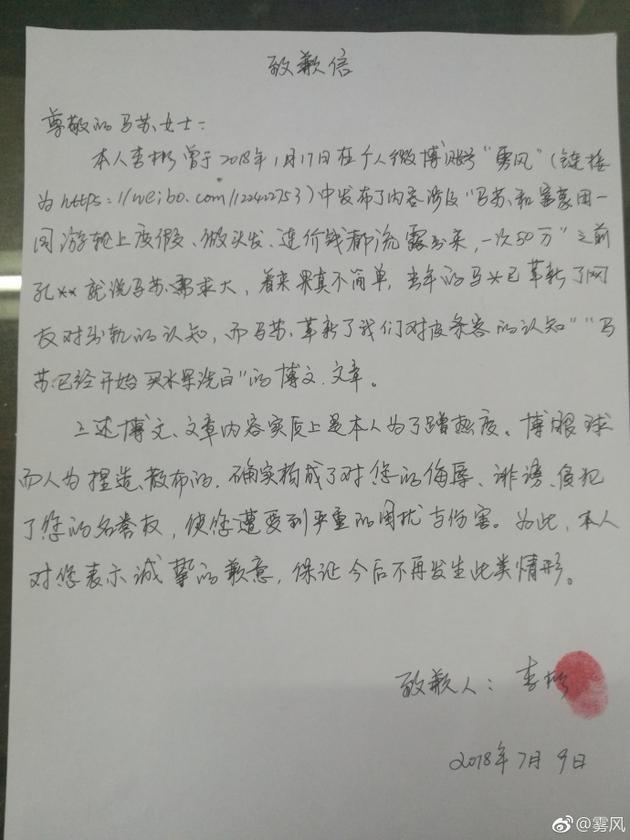 致歉信
尊敬的马苏女士：
本人李彬曾于2018年1月17日在个人微博账号"雾风"（链接
为https://weibo.com/122422753）中发布了内容涉及"马苏和富豪团一
同游轮上度假、做头发、连价钱都流露出来，一次50万""之前
孔**就说马苏需求大，看来果真不简单，当年的马*已革新了网
友对出轨的认知，而马苏革新了我们对皮条客的认知""马
苏已经开始买水果洗白"的博文、文章。
上述博文、文章内容实质上是本人为了蹭热度、博眼球
而人为捏造、散布的，确实构成了对您的侮辱、诽谤、侵犯
了您的名誉权，使您遭受到严重的困扰与伤害。为此，本人
对您表示诚挚的歉意，保证今后不再发生此类情形。
致歉人：李彬
2018年7月9日
@雾风